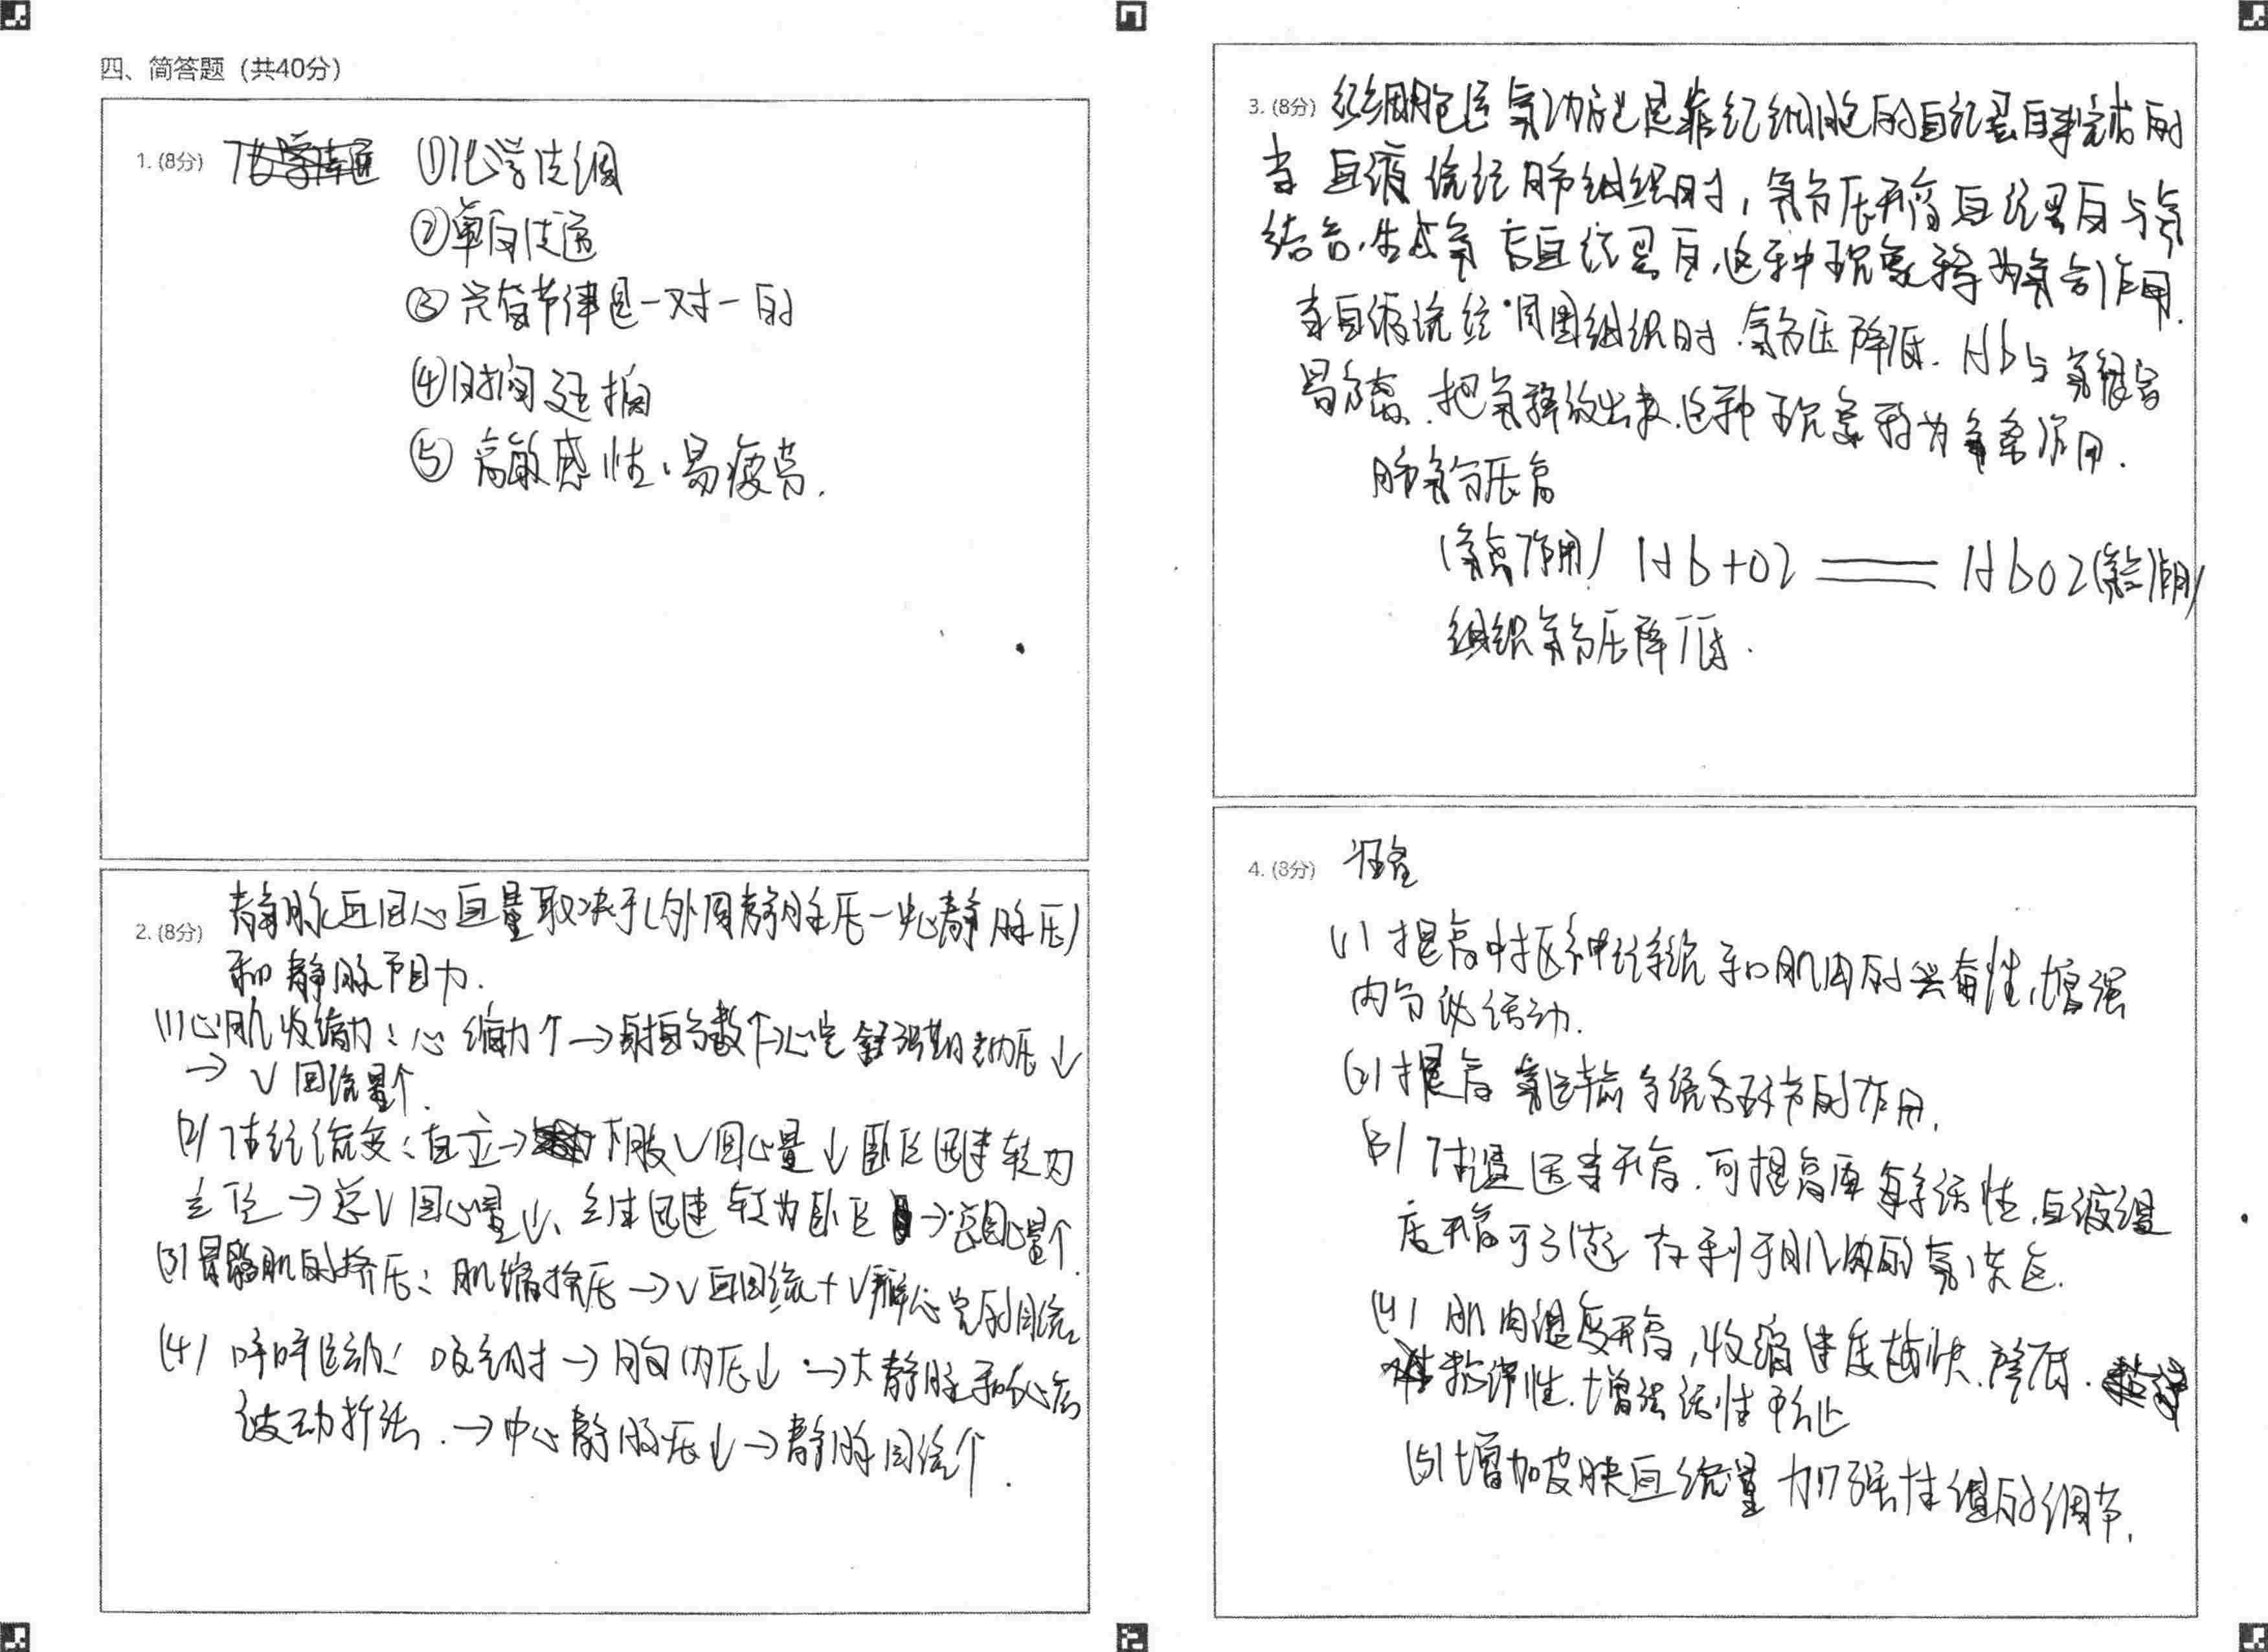 四、简答题 (共40分)
1. (8分) ①化学传递
②单向传递
③兴奋节律是一对一的
④时间延搁
⑤高敏感性、易疲劳.
2. (8分) 静脉血回心血量取决于(外周静脉压-中心静脉压)
和静脉阻力.
(1)心肌收缩力:心缩力↑→射血分数↑→心室舒张期室内压↓
→V回流量↑.
(2)体位改变:直立→下肢V回心量↓卧位迅速转为
立位→总V回心量↓、立位迅速转为卧位→总回心量↑
(3)骨骼肌的挤压:肌缩挤压→V血回流+V瓣心室的回流
(4)呼吸运动:吸气时→胸内压↓→大静脉和心房
被动扩张.→中心静脉压↓→静脉回流↑.
3. (8分) 红细胞运氧功能是靠红细胞的血红蛋白来完成的
当血液流经肺组织时,氧分压升高血红蛋白与氧
结合,生成氧合血红蛋白,这种现象称为氧合作用.
当血液流经周围组织时.氧分压降低.Hb与氧很容
易分离.把氧释放出来.这种现象称为氧离作用.
肺氧分压高
(氧离作用) Hb+O2 ═ HbO2(氧合作用)
组织氧分压降低.
4. (8分)
(1)提高中枢神经系统和肌肉的兴奋性,增强
内分泌活动.
(2)提高氧运输系统各环节的作用.
(3)体温适当升高.可提高酶系活性,血液温
度升高可 有利于肌肉的氧供应.
(4)肌肉温度升高,收缩速度加快.降低.
粘滞性.增
(5)增加皮肤血流量加强体温的调节.